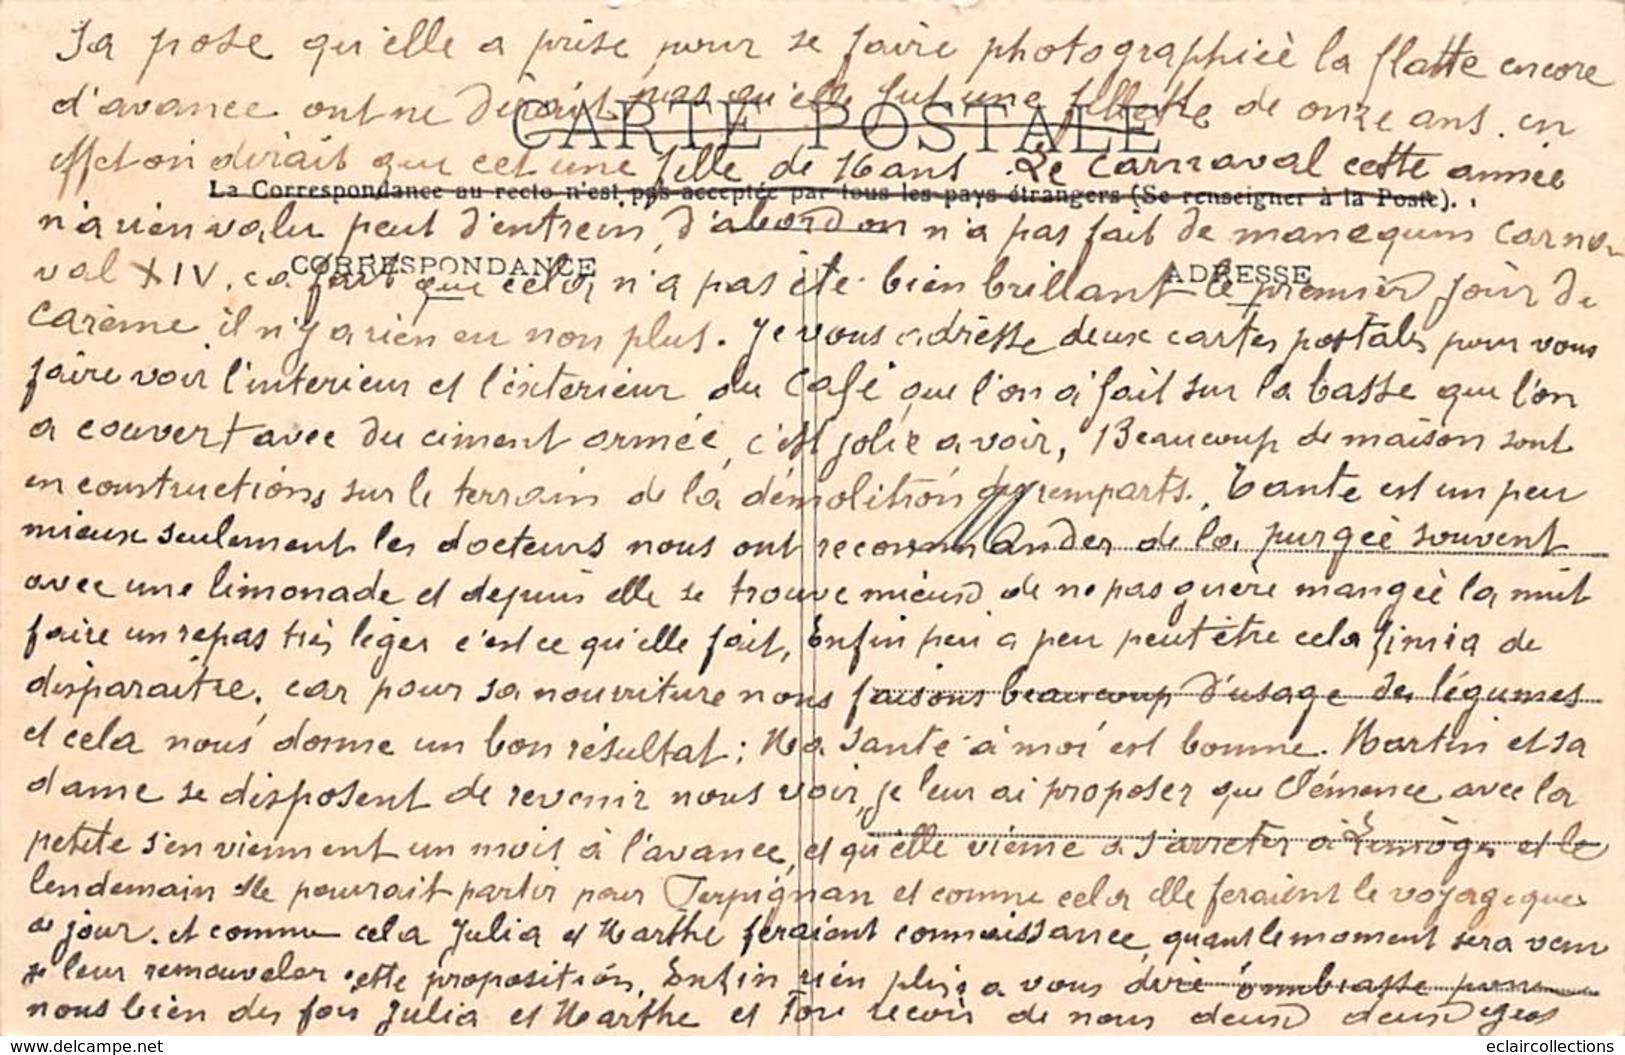 Sa pose qu'elle a prise pour se faire photographieè la flatte encore
d'avance ont ne dirait pas qu'elle fut une fillette de onze ans. en
CARTE POSTALE
effet on dirait que cet une fille de 16 ans. Le Carnaval cette année
La Correspondance au recto n'est pas acceptée par tous les pays étrangers (Se renseigner à la Poste).
n'a rien valu peut d'entrein, d'abord on n'a pas fait de manequin carna
CORRESPONDANCE ADRESSE
val XIV. ca fait que cela n'a pas ete bien brillant le premier jour de
Carème il n'y a rien eu non plus. Je vous adresse deux cartes postales pour vous
faire voir l'interieur et l'éxterieur du Café que l'on a fait sur la basse que l'on
a couvert avec du ciment armée, c'est jolie a voir, Beaucoup de maison sont
en constructions sur le terrain de la démolition des remparts. Tante est un peu
mieux seulement les docteurs nous ont recommander de la purgeè souvent
avec une limonade et depuis elle se trouve mieux de ne pas guère mangeè la nuit
faire un repas très léger c'est ce qu'elle fait, Enfin peu a peu peut être cela finia de
disparaitre. car pour sa nourriture nous faisons beaucoup d'usage des légumes
et cela nous donne un bon résultat; Ma santé à moi est bonne. Martin et sa
dame se disposent de revenir nous voir, je leur ai proposer que Clémence avec la
petite s'en viennent un mois à l'avance, et qu'elle viène a s'arreter à Limoges et le
lendemain elle pourrait partir pour Perpignan et comme cela elle feraient le voyage que
de jour. et comme cela Julia et Marthe feraient connaissance, quant le moment sera venu
je leur renouveler cette proposition. Enfin rien plus a vous dire embrasse pour
nous bien des fois Julia et Marthe et recois de nous deux deux gros
eclaircollections
www.delcampe.net